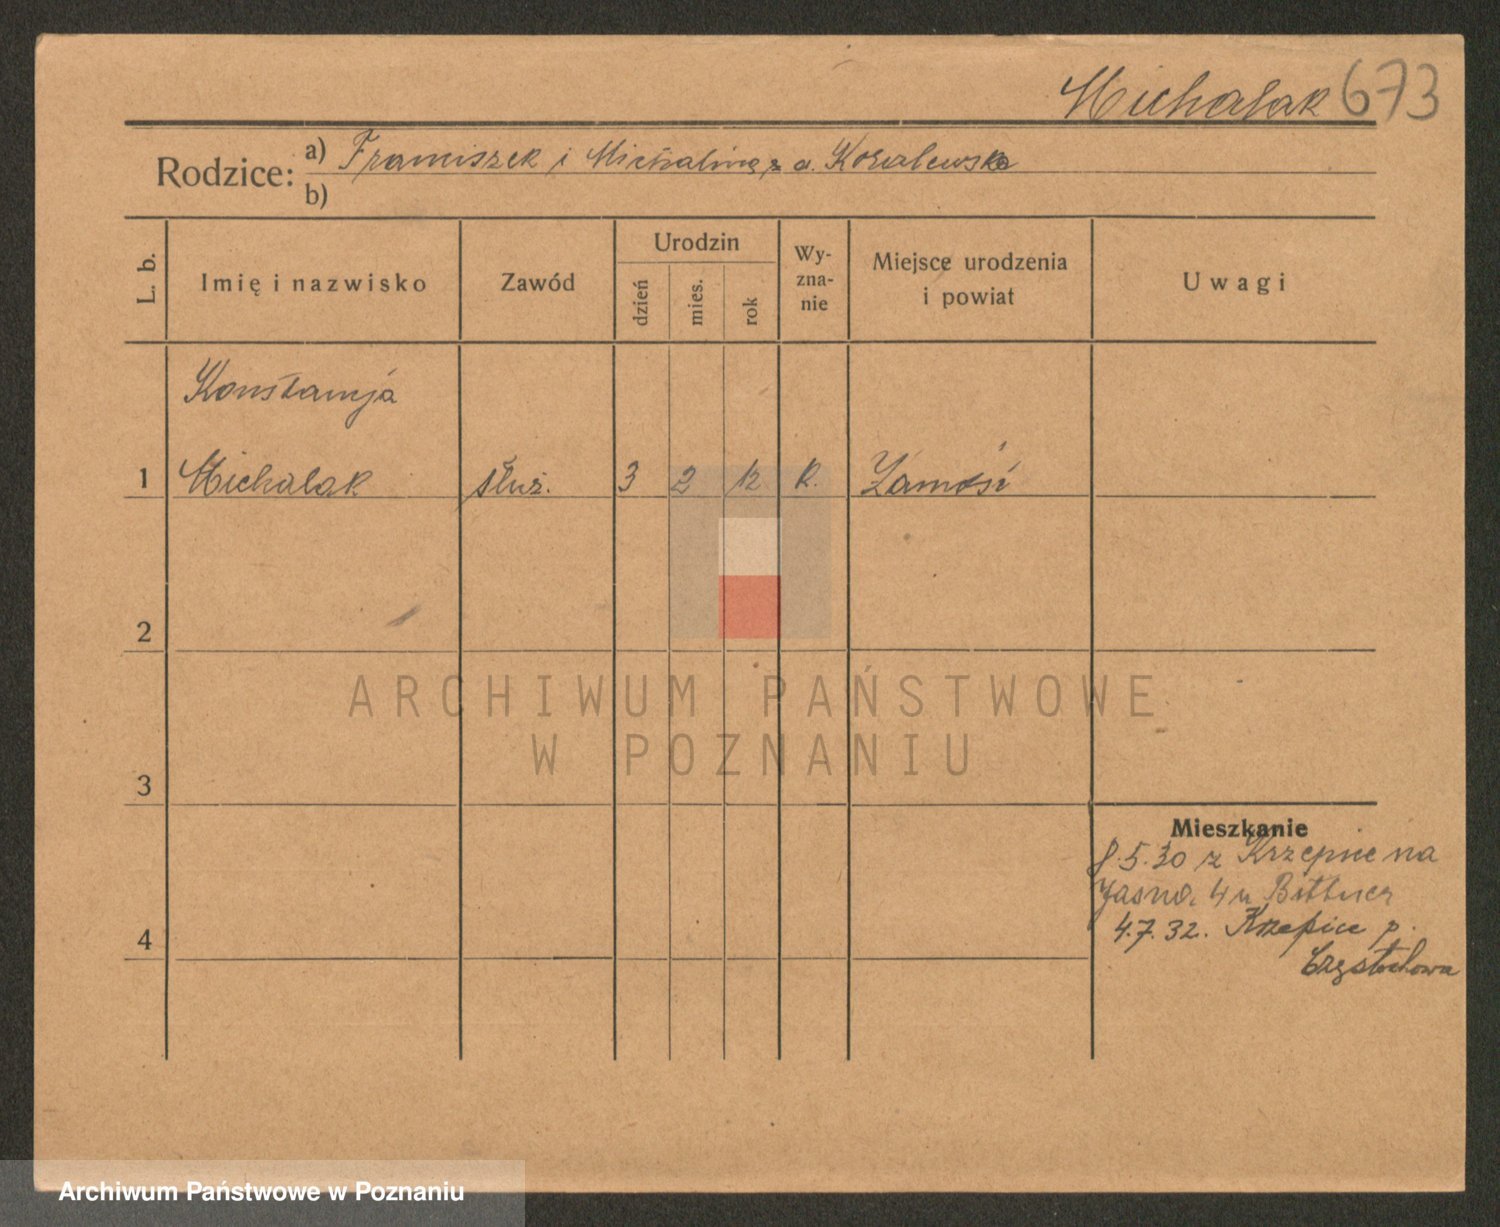 Michalak 673
Rodzice: a) Franciszek i Michalina z d. Kowalewska
b)
L. b.
Imię i nazwisko
Zawód
Urodzin
dzień
mies.
rok
Wy-
zna-
nie
Miejsce urodzenia
i powiat
Uwagi
Konstancja
1 Michalak służ. 3 2 12 R. Zamość
2
ARCHIWUM PAŃSTWOWE
W POZNANIU
3
Mieszkanie
8.5.30 z Krzepic na
Jasna 4 u Bittner
4
4.7.32. Krzepice p.
Częstochowa
Archiwum Państwowe w Poznaniu